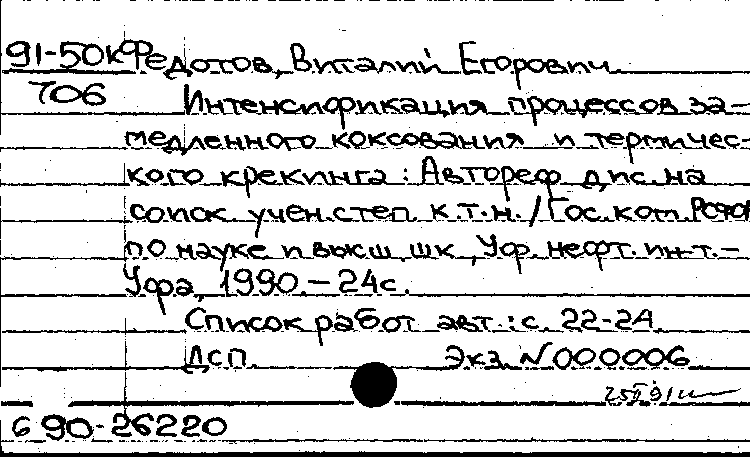 91-50к Федотов, Виталий Егорович.
706 Интенсификация процессов за-
медленного коксования и термичес-
кого крекинга : Автореф. дис. на
соиск. учен. степ. к.т.н. / Гос. ком. РСФСР
по науке и высш. шк., Уфр. нефт. ин-т. -
Уфа, 1990. - 24с.
Список работ авт.: с. 22-24.
Дсп. Экз. N 000006
6 90-26220